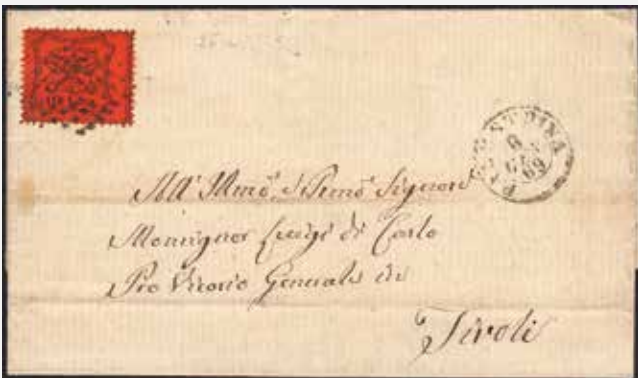 PALESTRINA
6
69
All' Illmõ e Signore
Monsignor Luigi de Carlo
Pro Vicario Generale in
Tivoli